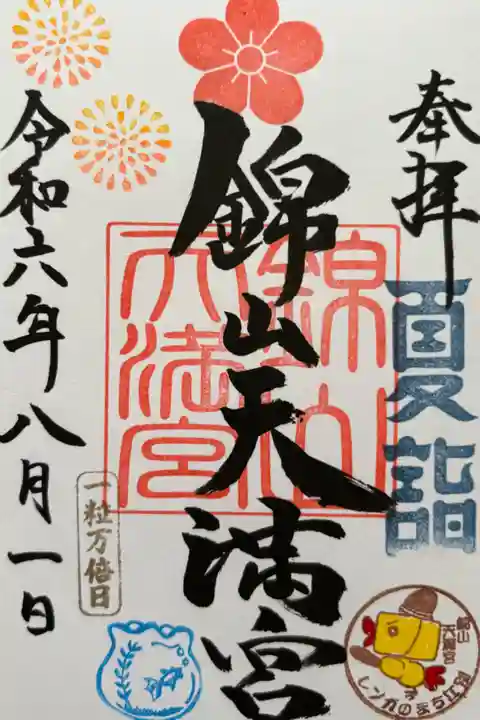 奉拝
夏詣
錦山天満宮
錦山
天満宮
令和六年八月一日
一粒万倍日
錦山
天満宮
レンガのまち江別